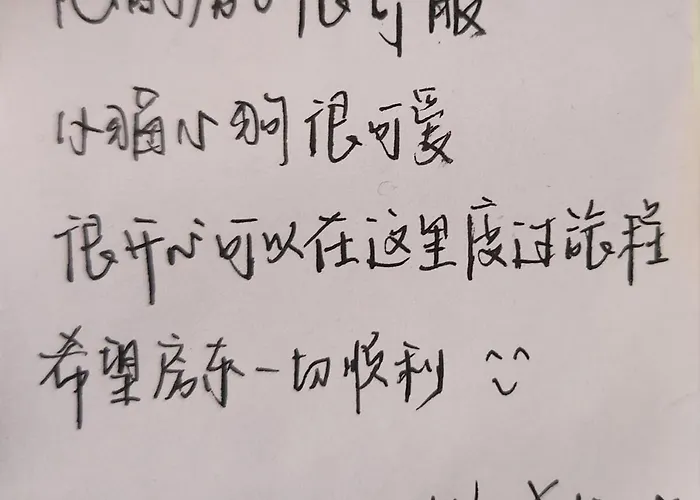 小猫小狗很可爱
很开心可以在这里度过旅程
希望房东一切顺利